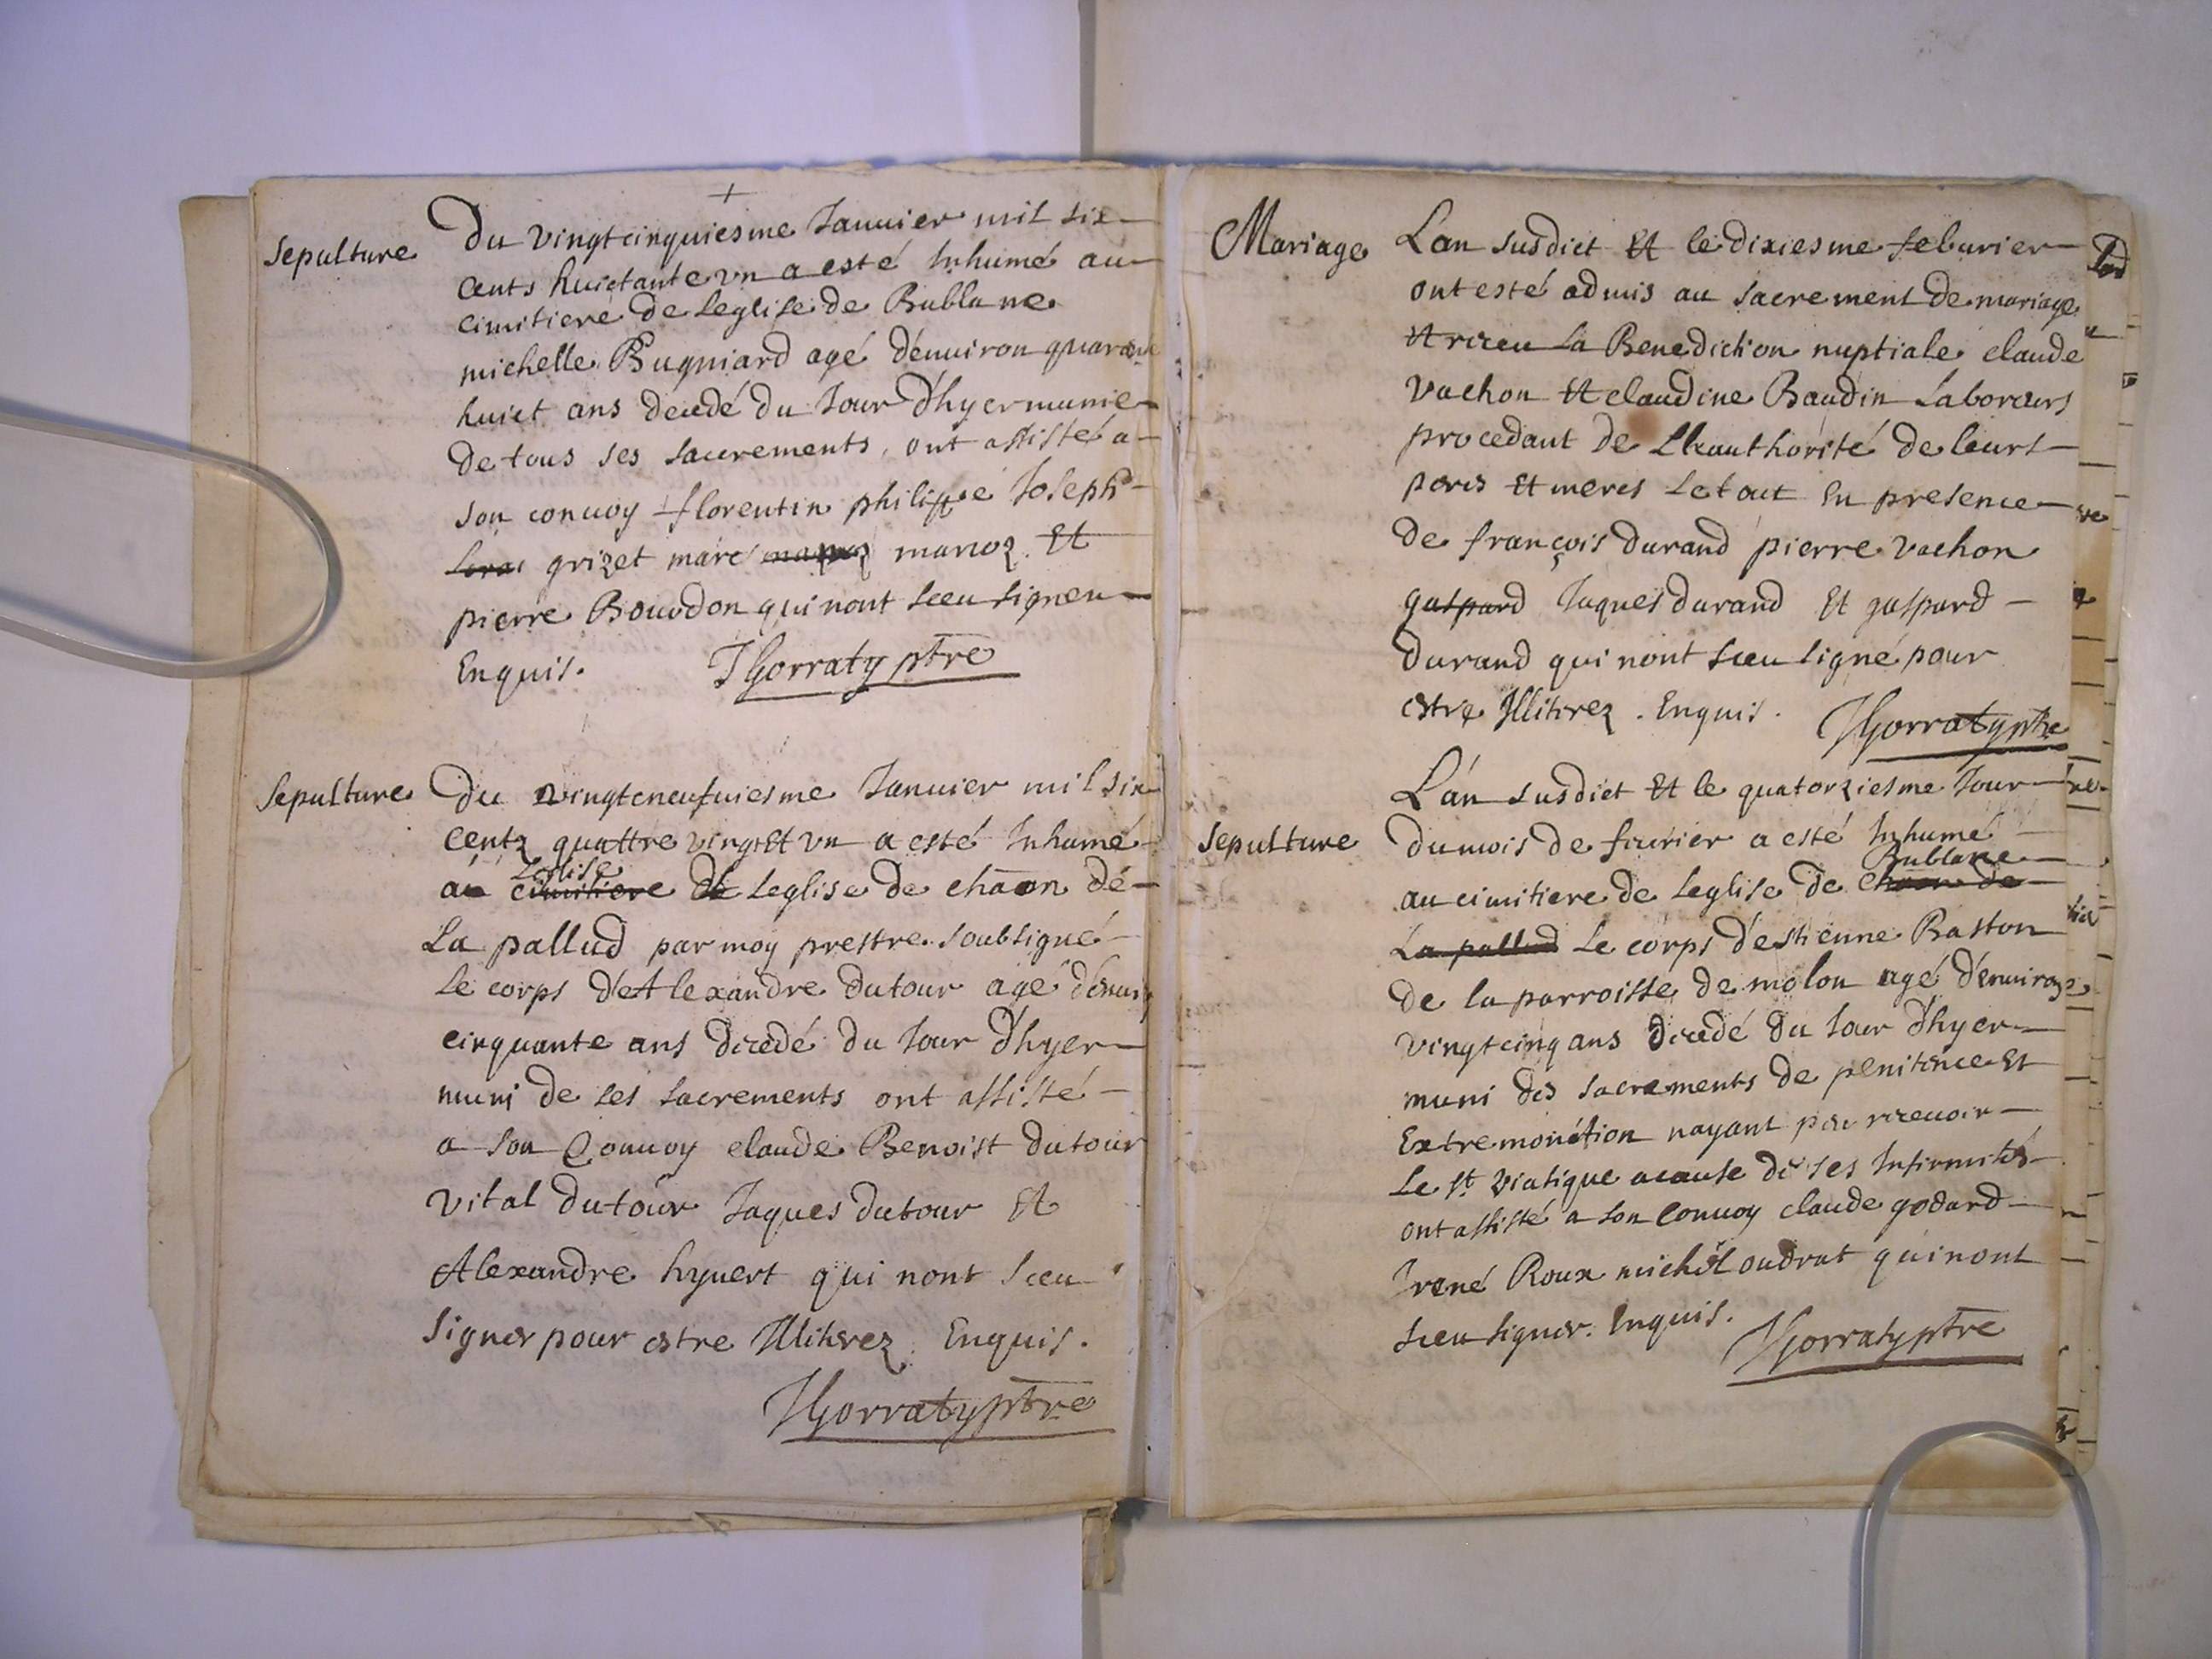 +
Sepulture
Du vingtcinquiesme Januier mil six
cents huictante vn a esté Inhumé au
cimitiere de Leglise de Bublane
michelle Bugniard agé dénuiron quarante
huict ans decedé du Jour d'hyer munie
de tous ses sacrements, ont assisté a
son conuoy florentin philippe Joseph
grizet marc manoz Et
pierre Bouvdon qui nont sceu signer
Enquis. JGorraty ptre
Sepulture
Du vingteneufuiesme Januier mil six
centz quattre vingt Et vn a esté Inhumé
Leglise
au cimitiere de Leglise de chaon de
La pallud par moy prestre soubsigné
Le corps d'Alexandre dutour agé d'enuiron
cinquante ans decedé du Jour d'hyer
muni de ses sacrements ont assisté
a son Conuoy claude Benoist dutour
vital dutour Jaques dutour Et
Alexandre hyuert qui nont sceu
signer pour estre Illiterez. Enquis.
JGorraty ptre
Mariage
Lan susdict Et le dixiesme feburier
ont esté admis au sacrement de mariage
Et receu La Benediction nuptiale claude
vachon Et claudine Baudin Laboreurs
procedant de Lhauthorité de leurs
peres Et meres Le tout En presence
de françois durand pierre vachon
gaspard Jaques durand Et gaspard
durand qui nont sceu signé pour
estre Illiterez. Enquis. JGorraty ptre
Sepulture
L'an susdict Et le quatorziesme Jour
du mois de feurier a esté Inhumé
Bublane
au cimitiere de Leglise de chaon de
La pallud Le corps d'estienne Baston
de la parroisse de molon agé d'enuiron
vingtcinq ans decedé du Jour d'hyer
muni des sacrements de penitence Et
Extremonction nayant peu receuoir
Le st viatique a cause de ses Infirmités
ont assisté a son Conuoy claude godard
Irené Roux michel oudrat qui nont
sceu signer. Enquis. JGorraty ptre